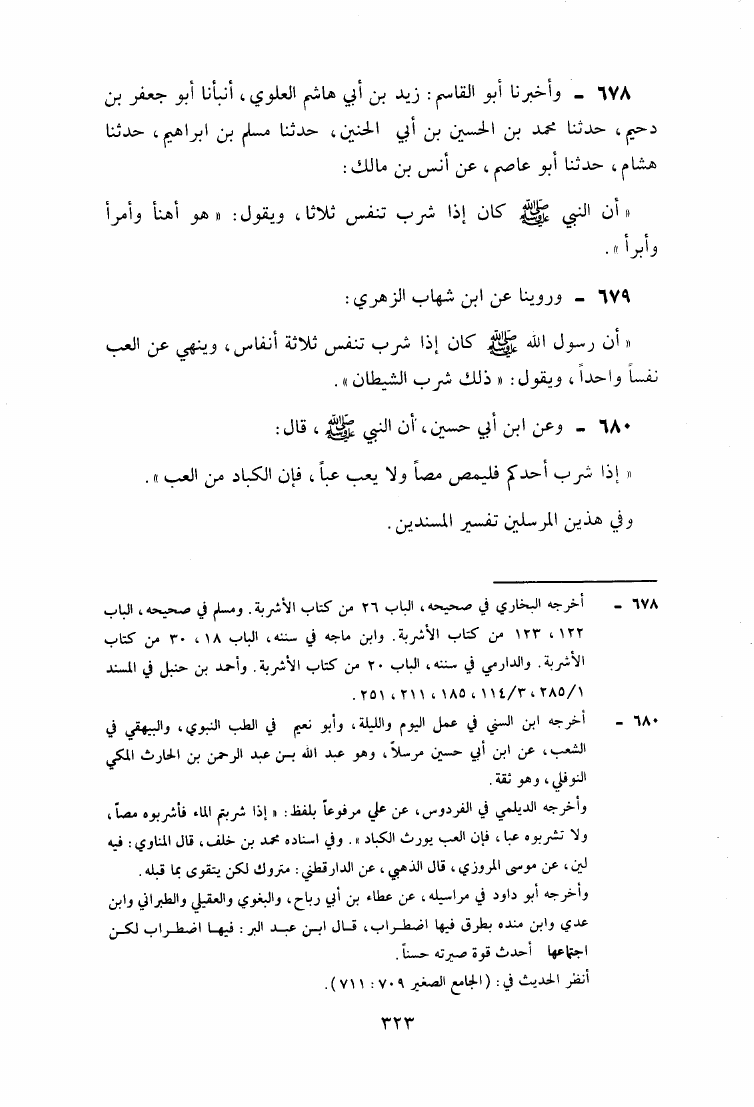 ٦٧٨ ـ وأخبرنا أبو القاسم: زيد بن أبي هاشم العلوي، أنبأنا أبو جعفر بن
دحيم، حدثنا محمد بن الحسين بن أبي الحنين، حدثنا مسلم بن ابراهيم، حدثنا
هشام، حدثنا أبو عاصم، عن أنس بن مالك:
« أن النبي ﷺ كان إذا شرب تنفس ثلاثا، ويقول: « هو أهنأ وأمرأ
وأبرأ ».
٦٧٩ ـ وروينا عن ابن شهاب الزهري:
« أن رسول الله ﷺ كان إذا شرب تنفس ثلاثة أنفاس، وينهي عن العب
نفساً واحداً، ويقول: « ذلك شرب الشيطان ».
٦٨٠ ـ وعن ابن أبي حسين، أن النبي ﷺ، قال:
« إذا شرب أحدكم فليمص مصاً ولا يعب عباً، فإن الكباد من العب ».
وفي هذين المرسلين تفسير المسندين.
٦٧٨ ـ أخرجه البخاري في صحيحه، الباب ٢٦ من كتاب الأشربة. ومسلم في صحيحه، الباب
١٢٢، ١٢٣ من كتاب الأشربة. وابن ماجه في سننه، الباب ١٨، ٣٠ من كتاب
الأشربة. والدارمي في سننه، الباب ٢٠ من كتاب الأشربة. وأحمد بن حنبل في المسند
٢٨٥/١، ١١٤/٣، ١٨٥، ٢١١، ٢٥١.
٦٨٠ ـ أخرجه ابن السني في عمل اليوم والليلة، وأبو نعيم في الطب النبوي، والبيهقي في
الشعب، عن ابن أبي حسين مرسلاً، وهو عبد الله بن عبد الرحمن بن الحارث المكي
النوفلي، وهو ثقة.
وأخرجه الديلمي في الفردوس، عن علي مرفوعاً بلفظ: « إذا شربتم الماء فأشربوه مصاً،
ولا تشربوه عبا، فإن العب يورث الكباد ». وفي اسناده محمد بن خلف، قال المناوي: فيه
لين، عن موسى المروزي، قال الذهبي، عن الدارقطني: متروك لكن يتقوى بما قبله.
وأخرجه أبو داود في مراسيله، عن عطاء بن أبي رباح، والبغوي والعقيلي والطبراني وابن
عدي وابن منده بطرق فيها اضطراب، قال ابن عبد البر: فيها اضطراب لكن
اجتماعها أحدث قوة صيرته حسناً.
أنظر الحديث في: (الجامع الصغير ٧٠٩: ٧١١).
٣٢٣